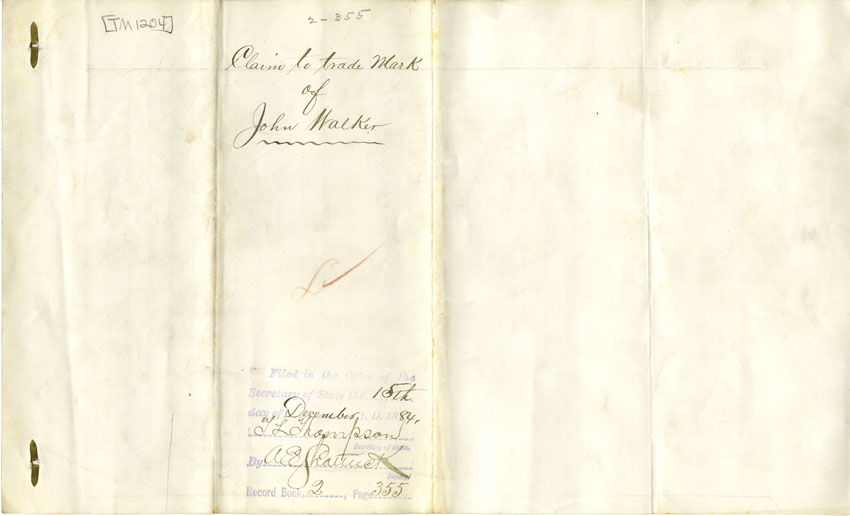 [TM1204]
2-355
Claim to trade Mark
of
John Walker
Filed in the Office of the
Secretary of State the 15th
day of December A. D. 1884.
T L Thompson
Secretary of State.
By A E Shattuck
Deputy
Record Book, 2, Page 355